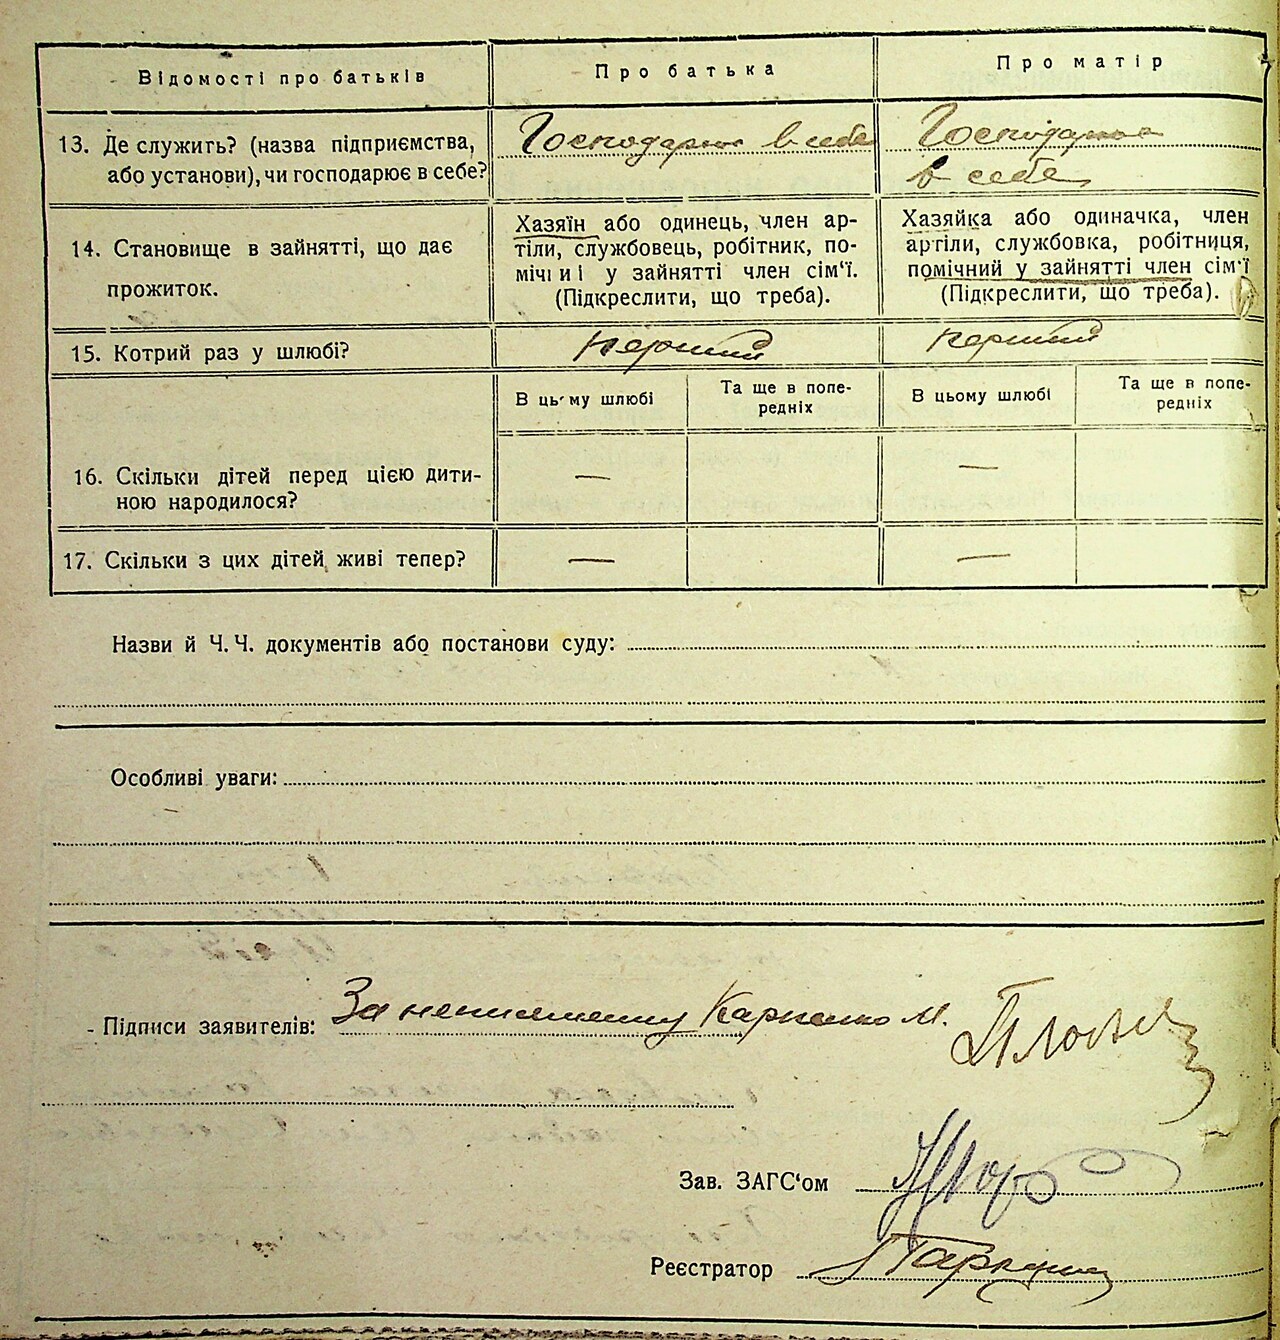 Відомості про батьків
Про батька
Про матір
13. Де служить? (назва підприємства,
або установи), чи господарює в себе?
Господарює в себе
Господарює
в себе
14. Становище в зайнятті, що дає
прожиток.
Хазяїн або одинець, член ар-
тіли, службовець, робітник, по-
мічниі у зайнятті член сім'ї.
(Підкреслити, що треба).
Хазяйка або одиначка, член
артіли, службовка, робітниця,
помічний у зайнятті член сім'ї
(Підкреслити, що треба).
15. Котрий раз у шлюбі?
первий
первий
В цьому шлюбі
Та ще в попе-
редніх
В цьому шлюбі
Та ще в попе-
редніх
16. Скільки дітей перед цією дити-
ною народилося?
—
—
17. Скільки з цих дітей живі тепер?
—
—
Назви й Ч. Ч. документів або постанови суду:
Особливі уваги:
- Підписи заявителів: За неписменну Карпенко М.
Зав. ЗАГС'ом
Реєстратор